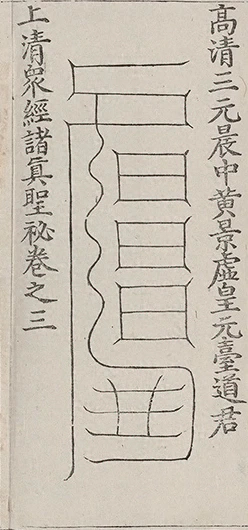 高清三元晨中黄景虛皇元臺道君
上清眾經諸真聖秘卷之三